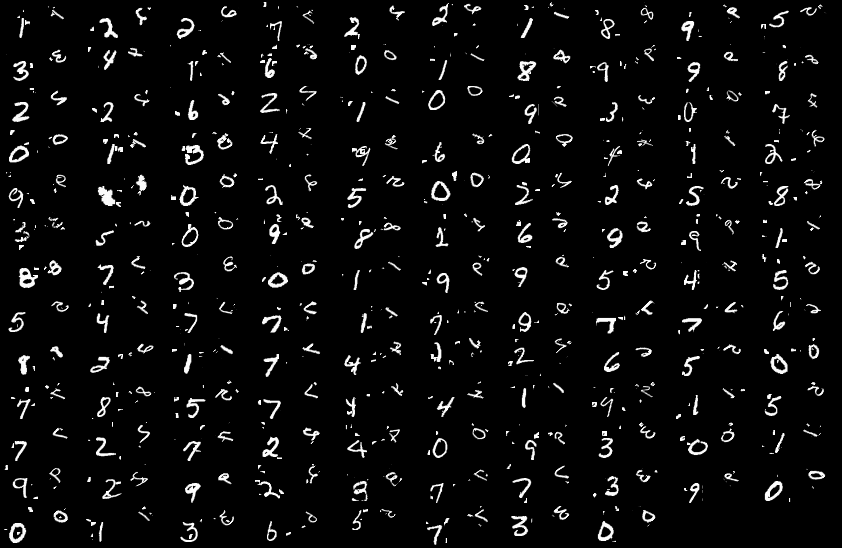 1 2 2 7 2 2 1 8 9 5
3 4 1 6 0 1 8 9 9 8
2 2 6 2 1 0 9 3 0 7
0 1 3 4 9 6 0 4 1 2
9 0 2 5 0 2 2 5 8
3 5 0 9 8 1 6 9 9 1
8 7 3 0 1 9 9 5 4 5
5 4 7 7 1 7 9 7 7 6
8 2 1 7 4 1 2 6 5 0
7 8 5 7 1 4 1 9 1 5
7 2 7 2 4 0 9 3 0 1
9 2 9 2 3 7 7 3 9 0
0 1 3 6 5 7 3 0